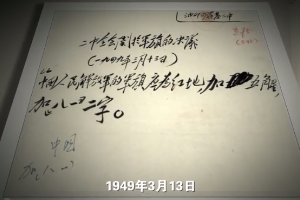 二中全会关于军旗的决议
(一九四九年三月十三日)
中国人民解放军的军旗应为红地,加五星,
加八一二字。
中国
加八一
1949年3月13日